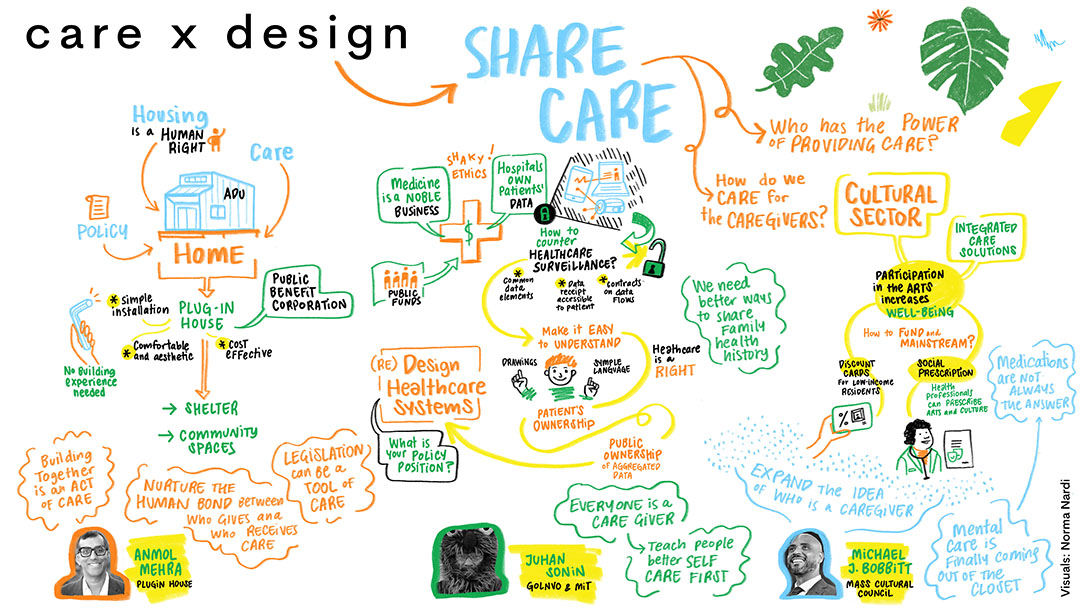 care x design
SHARE
CARE
Who has the POWER
of PROVIDING CARE?
How do we
CARE for
the CAREGIVERS?
Housing
is a HUMAN
RIGHT
Care
ADU
POLICY
HOME
PUBLIC
BENEFIT
CORPORATION
* Simple
installation
PLUG-IN
HOUSE
* Comfortable
and aesthetic
* COST
EFFECTIVE
No Building
experience
needed
→ SHELTER
→ COMMUNITY
SPACES
Building
Together
is an ACT
OF CARE
NURTURE THE
HUMAN BOND Between
Who GIVES and
Who RECEIVES
CARE
LEGISLATION
can BE a
TOOL of
CARE
ANMOL
MEHRA
PLUGIN HOUSE
SHAKY!
ETHICS
Medicine
is a NOBLE
BUSINESS
Hospitals
OWN
PATIENTS'
DATA
$
PUBLIC
FUNDS
HOW TO
counter
HEALTHCARE
SURVEILLANCE?
* Common
data
elements
* Data
receipt
accessible
to patient
* contracts
on data
flows
Make it EASY
to UNDERSTAND
DRAWINGS
SIMPLE
LANGUAGE
Healthcare
is a
RIGHT
PATIENT'S
OWNERSHIP
PUBLIC
OWNERSHIP
OF AGGREGATED
DATA
(RE) Design
Healthcare
Systems
What is
your POLICY
POSITION?
We need
better ways
to share
Family
health
history
EVERYONE is a
CARE GIVER
→ Teach people
better SELF
CARE FIRST
JUHAN
SONIN
GOINVO & MIT
CULTURAL
SECTOR
INTEGRATED
CARE
SOLUTIONS
PARTICIPATION
in the ARTS
increases
WELL-BEING
How to FUND and
MAINSTREAM?
DISCOUNT
CARDS
FOR LOW-INCOME
RESIDENTS
SOCIAL
PRESCRIPTION
Health
professionals
can PRESCRIBE
ARTS and CULTURE
%
Medications
are NOT
ALWAYS
THE ANSWER
EXPAND THE IDEA
OF WHO is a CAREGIVER
Mental
Care is
Finally coming
OUT OF THE
CLOSET
MICHAEL
J. BOBBITT
MASS CULTURAL
COUNCIL
Visuals: Norma Nardi